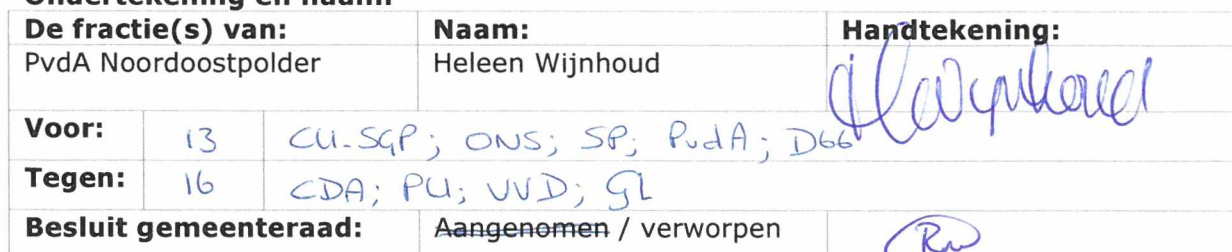 Ondertekening en naam:
De fractie(s) van: Naam: Handtekening:
PvdA Noordoostpolder Heleen Wijnhoud
Voor: 13 CU-SGP; ONS; SP; PvdA; D66
Tegen: 16 CDA; PU; VVD; GL
Besluit gemeenteraad: Aangenomen / verworpen